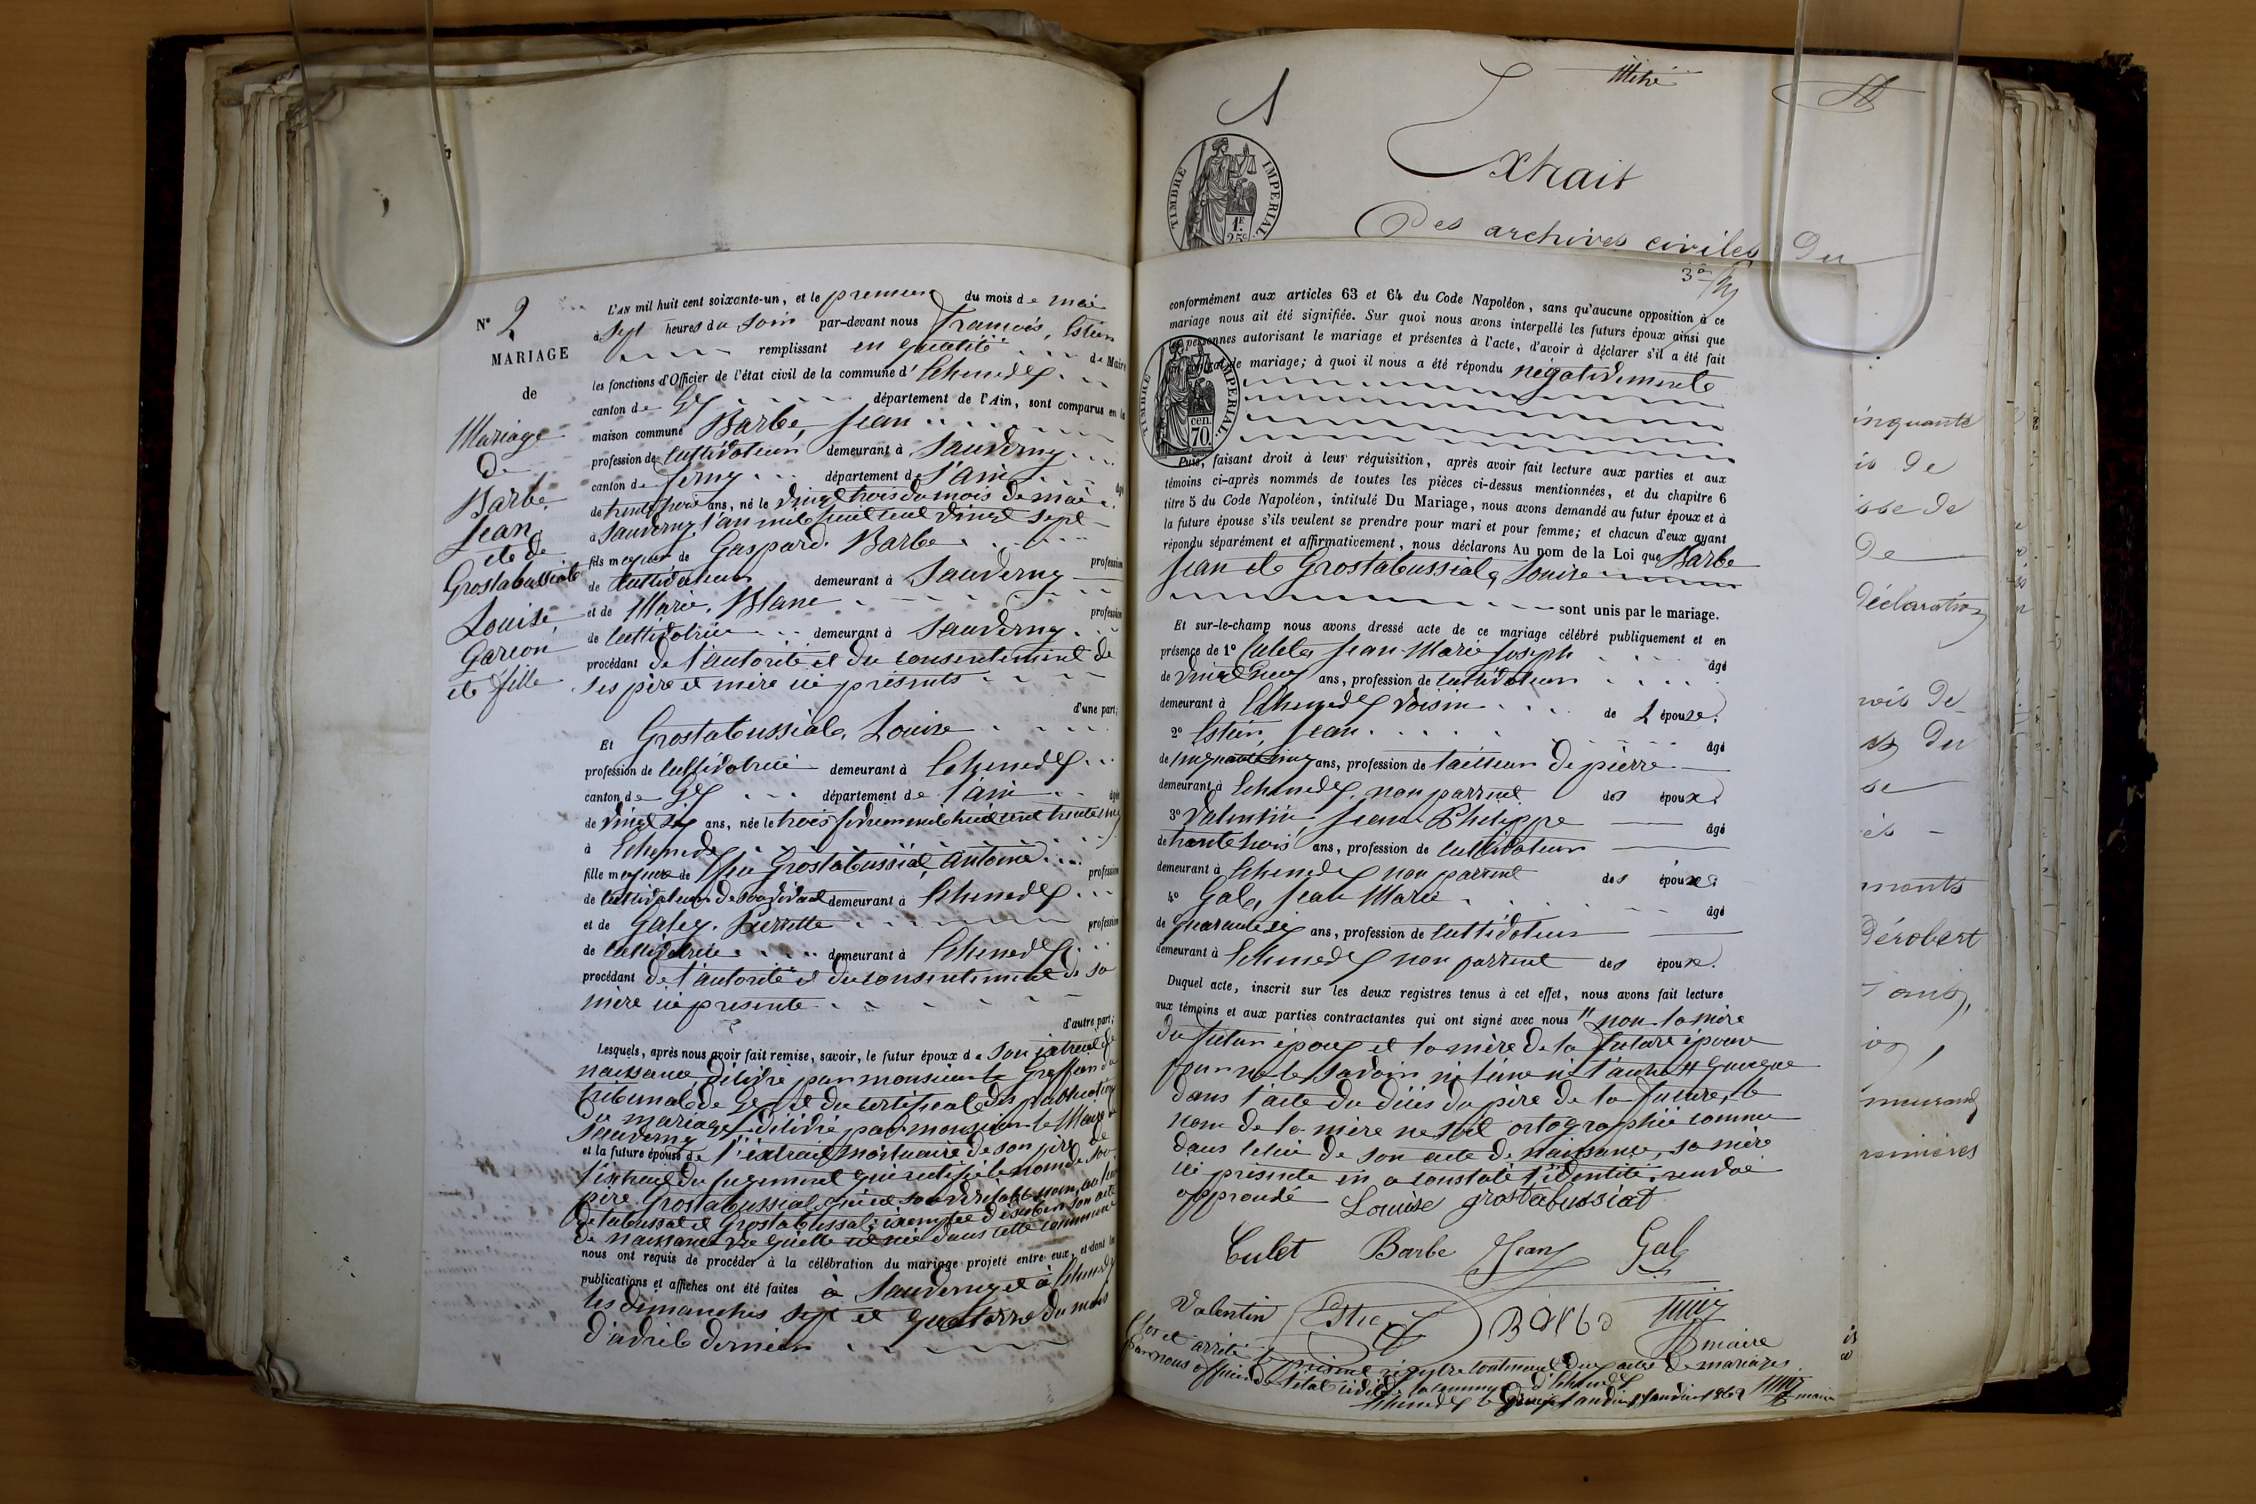 N° 2
MARIAGE
de
Mariage
De
Barbe
Jean
et de
Grostabussiat
Louise
Garcon
et fille
L'AN mil huit cent soixante-un, et le premier du mois de mai
à sept heures du soir par-devant nous François, Estier
remplissant en qualité de Maire
les fonctions d'Officier de l'état civil de la commune d'Echenedex
canton de Gex département de l'Ain, sont comparus en la
maison commune Barbe, Jean
profession de cultivateur demeurant à Sauverny
canton de ferney département de l'ain âgé
de trente trois ans, né le vingt trois du mois de mai
à Sauverny l'an mil huit cent vingt sept
fils majeur de Gaspard Barbe profession
de cultivateur demeurant à Sauverny
et de Marie Blanc profession
de cultivatrice demeurant à Sauverny
procédant de l'autorité et du consentement de
ses père et mère ici présents
d'une part;
Et Grostabussiat, Louise
profession de cultivatrice demeurant à Echenedex
canton de Gex département de l'ain âgée
de vingt six ans, née le trois février mil huit cent trente cinq
à Echenedex
fille majeure de feu Grostabussiat, Antoine profession
de cultivateur de son vivant demeurant à Echenedex
et de Galey, Pierrette profession
de cultivatrice demeurant à Echenedex
procédant de l'autorité et du consentement de sa
mère ici présente
d'autre part;
Lesquels, après nous avoir fait remise, savoir, le futur époux de son extrait de
naissance délivré par monsieur le Greffier du
tribunal de Gex et du certificat des publications
de mariage délivré par monsieur le Maire de
Sauverny
et la future épouse de l'extrait mortuaire de son père de
l'extrait du jugement qui rectifie le nom de son
père Grostabussiat qui est son véritable nom, au lieu
de tabussat et Grostabussat; exemptée d'exiber son acte
de naissance vu qu'elle est née dans cette commune
nous ont requis de procéder à la célébration du mariage projeté entre eux, et dont les
publications et affiches ont été faites à Sauverny et à Echenedex
les dimanches sept et quatorze du mois
d'avril dernier
Extrait
Des archives civiles du
TIMBRE IMPERIAL
1F. 25c.
conformément aux articles 63 et 64 du Code Napoléon, sans qu'aucune opposition à ce
mariage nous ait été signifiée. Sur quoi nous avons interpellé les futurs époux ainsi que
les personnes autorisant le mariage et présentes à l'acte, d'avoir à déclarer s'il a été fait
contrat de mariage; à quoi il nous a été répondu négativement
TIMBRE IMPERIAL
cen. 70.
Puis, faisant droit à leur réquisition, après avoir fait lecture aux parties et aux
témoins ci-après nommés de toutes les pièces ci-dessus mentionnées, et du chapitre 6
titre 5 du Code Napoléon, intitulé Du Mariage, nous avons demandé au futur époux et à
la future épouse s'ils veulent se prendre pour mari et pour femme; et chacun d'eux ayant
répondu séparément et affirmativement, nous déclarons Au nom de la Loi que Barbe
Jean et Grostabussiat, Louise
sont unis par le mariage.
Et sur-le-champ nous avons dressé acte de ce mariage célébré publiquement et en
présence de 1° Culet, Jean Marie Joseph âgé
de ans, profession de cultivateur
demeurant à Echenedex voisin de l'épouse.
2° Estier, Jean âgé
de cinquante cinq ans, profession de tailleur de pierre
demeurant à Echenedex non parrent des époux.
3° Valentin, Jean Philippe âgé
de trente trois ans, profession de cultivateur
demeurant à Echenedex non parrent des époux.
4° Gal, Jean Marie âgé
de quarante six ans, profession de cultivateur
demeurant à Echenedex non parrent des époux.
Duquel acte, inscrit sur les deux registres tenus à cet effet, nous avons fait lecture
aux témoins et aux parties contractantes qui ont signé avec nous non la mère
du futur époux et la mère de la future épouse
pour ne le savoir ni l'une ni l'autre quoique
dans l'acte du décès du père de la future, le
nom de la mère ne soit ortographié comme
dans celui de son acte de naissance, sa mère
ici présente en a constaté l'identité. renvoi
approuvé Louise grostabussiat
Culet Barbe Jean Gal
Valentin Estier Barbe
maire
Clos et arrêté le présent registre contenant deux actes de mariages
par nous officier de l'état civil de la commune d'Echenedex
Echenedex le janvier 1862 maire
inquante
is de
sse de
De
Déclaration
mois De
Du
se
Dérobert